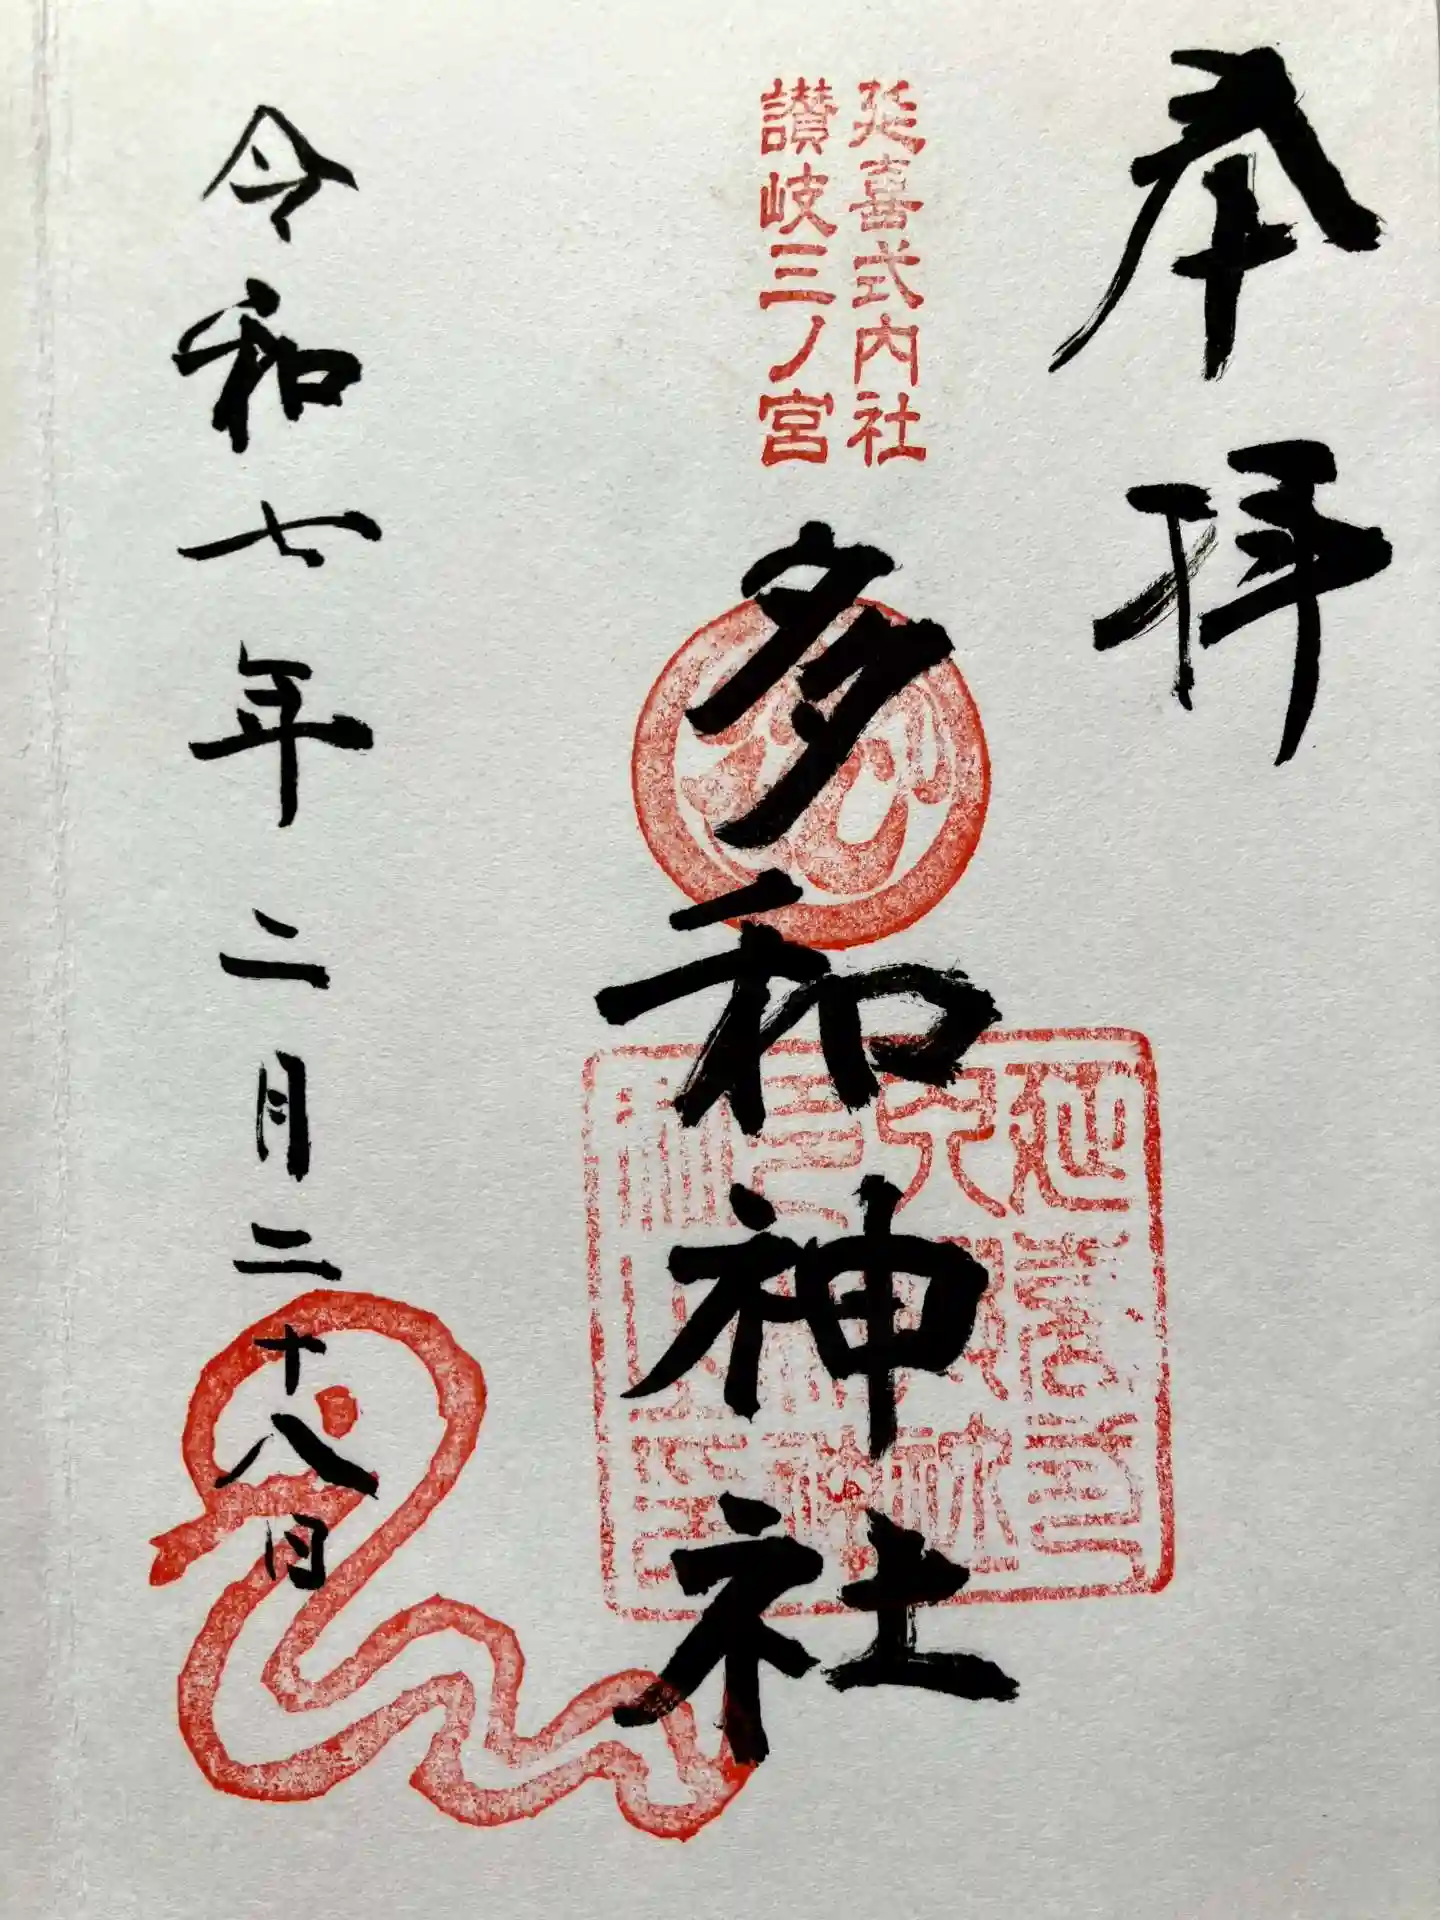 奉拝
延喜式内社
讃岐三ノ宮
多和神社
令和七年二月二十八日